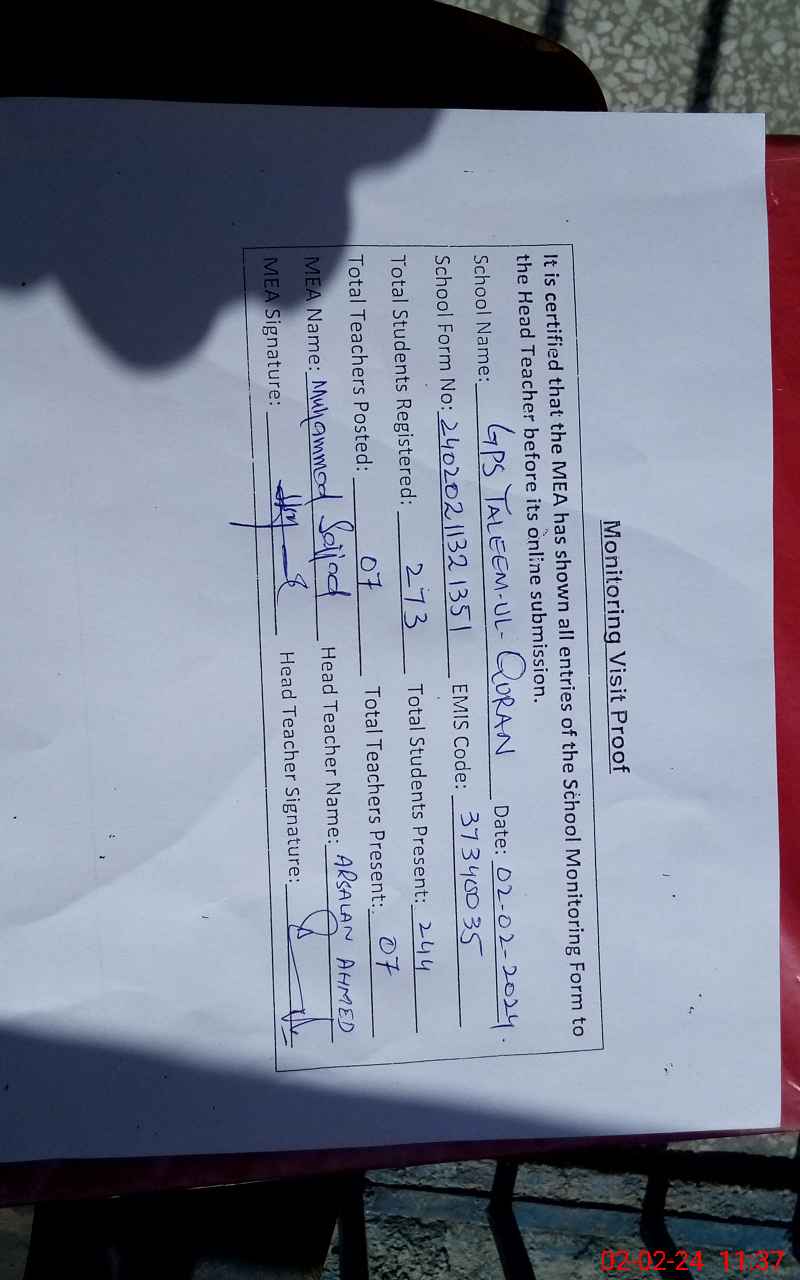 Monitoring Visit Proof
It is certified that the MEA has shown all entries of the School Monitoring Form to
the Head Teacher before its online submission.
School Name: GPS TALEEM-UL-QURAN Date: 02-02-2024.
School Form No: 2402021132 1351 EMIS Code: 37340035
Total Students Registered: 273 Total Students Present: 244
Total Teachers Posted: 07 Total Teachers Present: 07
MEA Name: Muhammad Sajjad Head Teacher Name: ARSALAN AHMED
MEA Signature: Head Teacher Signature:
02-02-24 11:37